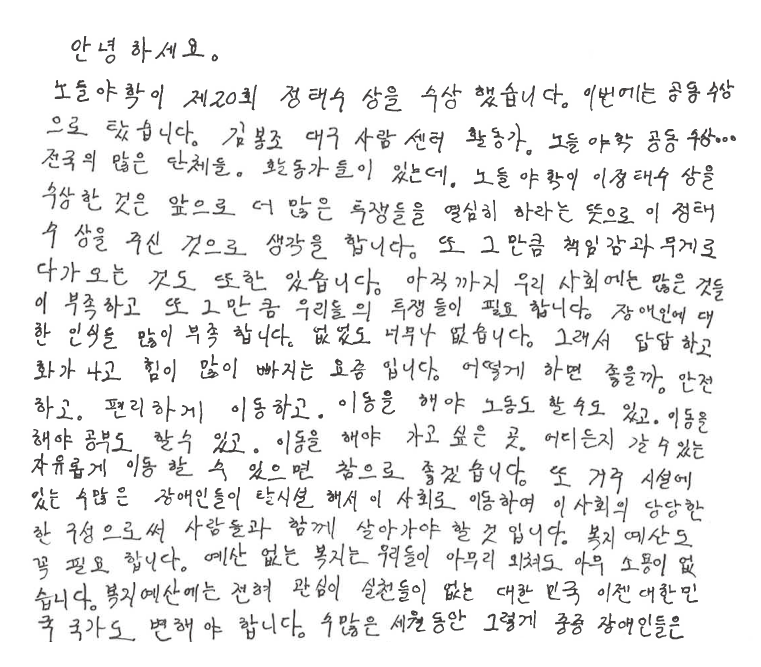 안녕하세요.
노들야학이 제20회 정태수 상을 수상 했습니다. 이번에는 공동수상
으로 탔습니다. 김봉조 대구 사람 센터 활동가. 노들야학 공동 수상...
전국의 많은 단체들. 활동가들이 있는데. 노들야학이 이정태수 상을
수상 한 것은 앞으로 더 많은 투쟁들을 열심히 하라는 뜻으로 이 정태
수 상을 주신 것으로 생각을 합니다. 또 그만큼 책임감과 무게로
다가오는 것도 또한 있습니다. 아직까지 우리 사회에는 많은 것들
이 부족하고 또 그만큼 우리들의 투쟁들이 필요합니다. 장애인에 대
한 인식들 많이 부족 합니다. 없었도 너무나 없습니다. 그래서 답답하고
화가 나고 힘이 많이 빠지는 요즘 입니다. 어떻게 하면 좋을까. 안전
하고. 편리하게 이동하고. 이동을 해야 노동도 할수도 있고. 이동을
해야 공부도 할수 있고. 이동을 해야 가고 싶은 곳. 어디든지 갈 수 있는
자유롭게 이동 할 수 있으면 참으로 좋겠습니다. 또 거주 시설에
있는 수많은 장애인들이 탈시설 해서 이 사회로 이동하여 이사회의 당당한
한 구성으로써 사람들과 함께 살아가야 할 것 입니다. 복지예산도
꼭 필요 합니다. 예산 없는 복지는 우리들이 아무리 외쳐도 아무 소용이 없
습니다. 복지예산에는 전혀 관심이 실천들이 없는 대한 민국 이젠 대한민
국 국가도 변해야 합니다. 수많은 세월동안 그렇게 중증 장애인들은